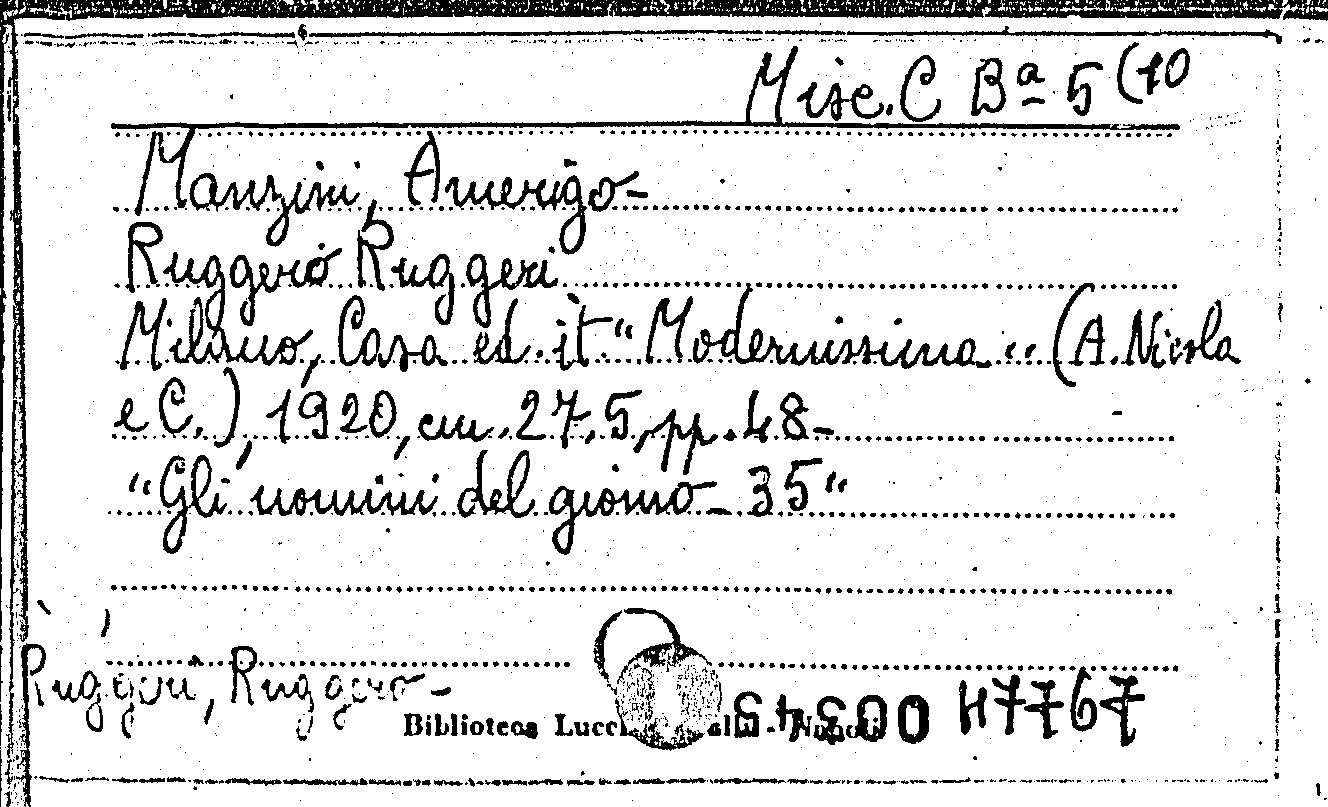 Misc. C Bª 5 (10
Manzini, Amerigo -
Ruggero Ruggeri
Milano, Casa ed. it. “Modernissima” (A. Nicola
e C.), 1920, cm. 27.5, pp. 48 -
“Gli uomini del giorno - 35”
Ruggeri, Ruggero -
Biblioteca Napoli
H7767